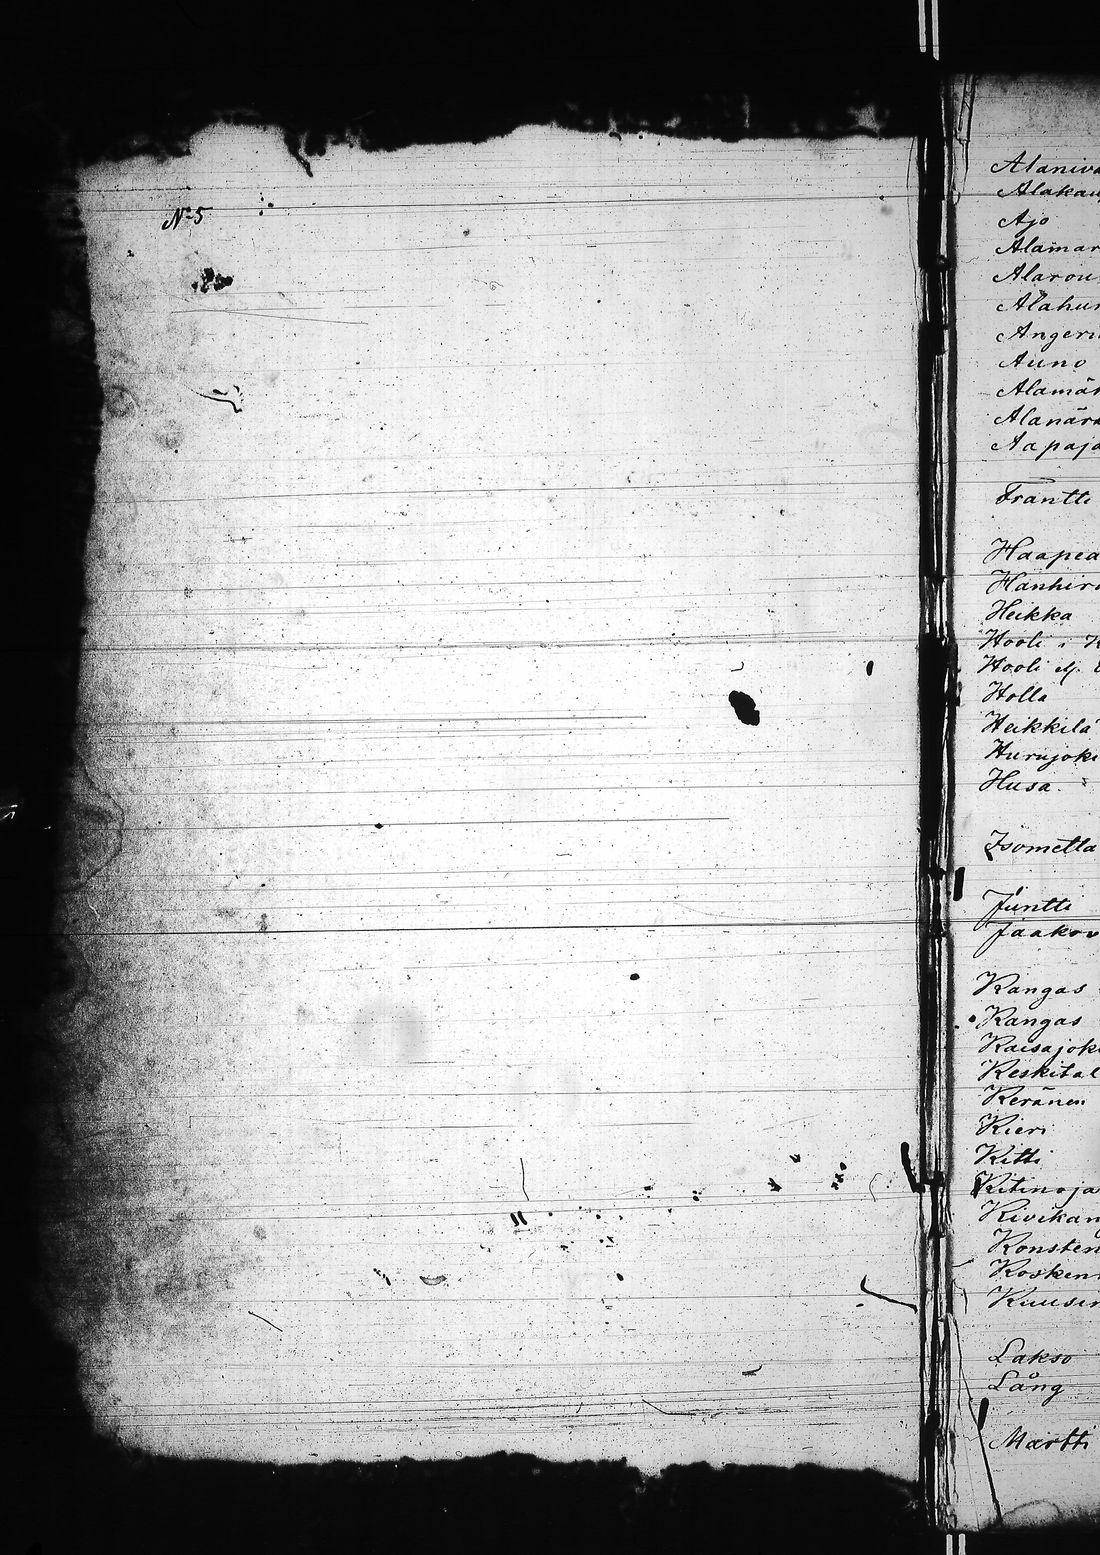 No 5
Alaniva
Alakau
Ajo
Alamar
Alarou
Alahur
Angeri
Auno
Alamä
Alanära
Aapaja
Frantti
Haapea
Hanhiro
Heikka
Hooli i K
Hooli
Holla
Heikkilä
Hurujoki
Husa
Isometta
Juntti
Jaakov
Kangas
Kangas
Kaisajoki
Keskital
Keränen
Kieri
Kitti
Kitinoja
Kivikan
Konsten
Kosken
Kuusi
Lakso
Lång
Martti